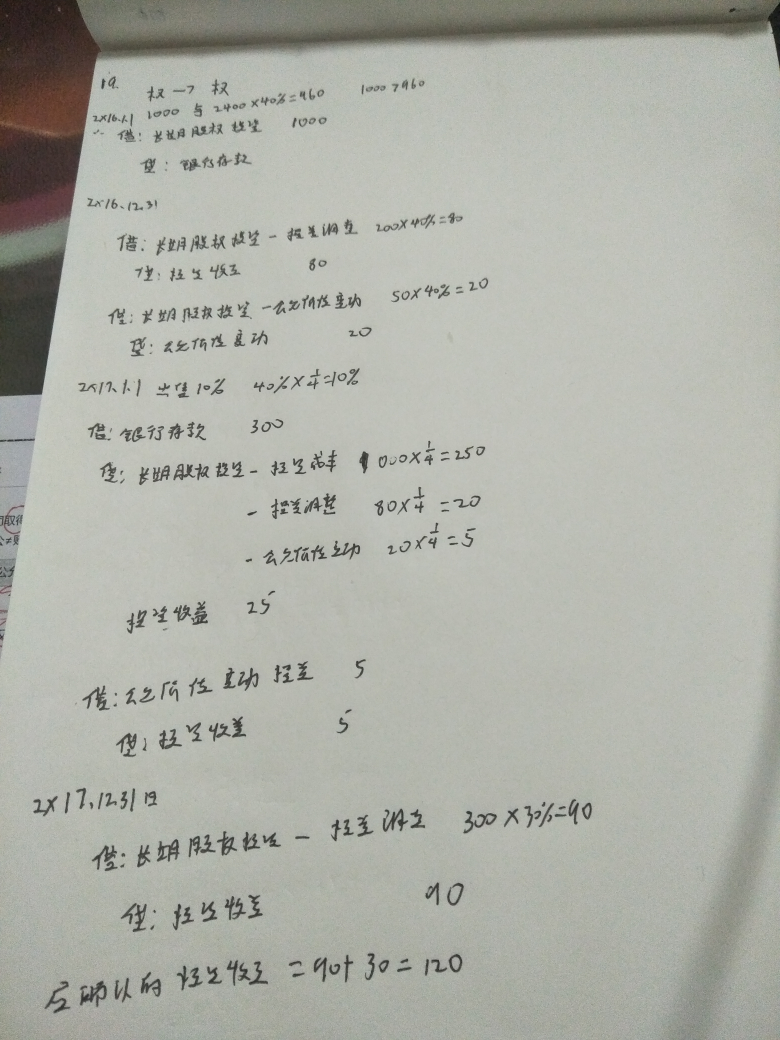 19. 权→权
2X16.1.1 1000 与 2400×40%=960 1000>960
∴ 借: 长期股权投资 1000
贷: 银行存款
2X16.12.31
借: 长期股权投资 - 损益调整 200×40%=80
贷: 投资收益 80
借: 长期股权投资 - 公允价值变动 50×40%=20
贷: 公允价值变动 20
2X17.1.1 出售10% 40%×1/4=10%
借: 银行存款 300
贷: 长期股权投资 - 投资成本 1000×1/4=250
- 损益调整 80×1/4=20
- 公允价值变动 20×1/4=5
投资收益 25
借: 公允价值变动损益 5
贷: 投资收益 5
2X17.12.31日
借: 长期股权投资 - 损益调整 300×30%=90
贷: 投资收益 90
应确认的投资收益 = 90+30=120